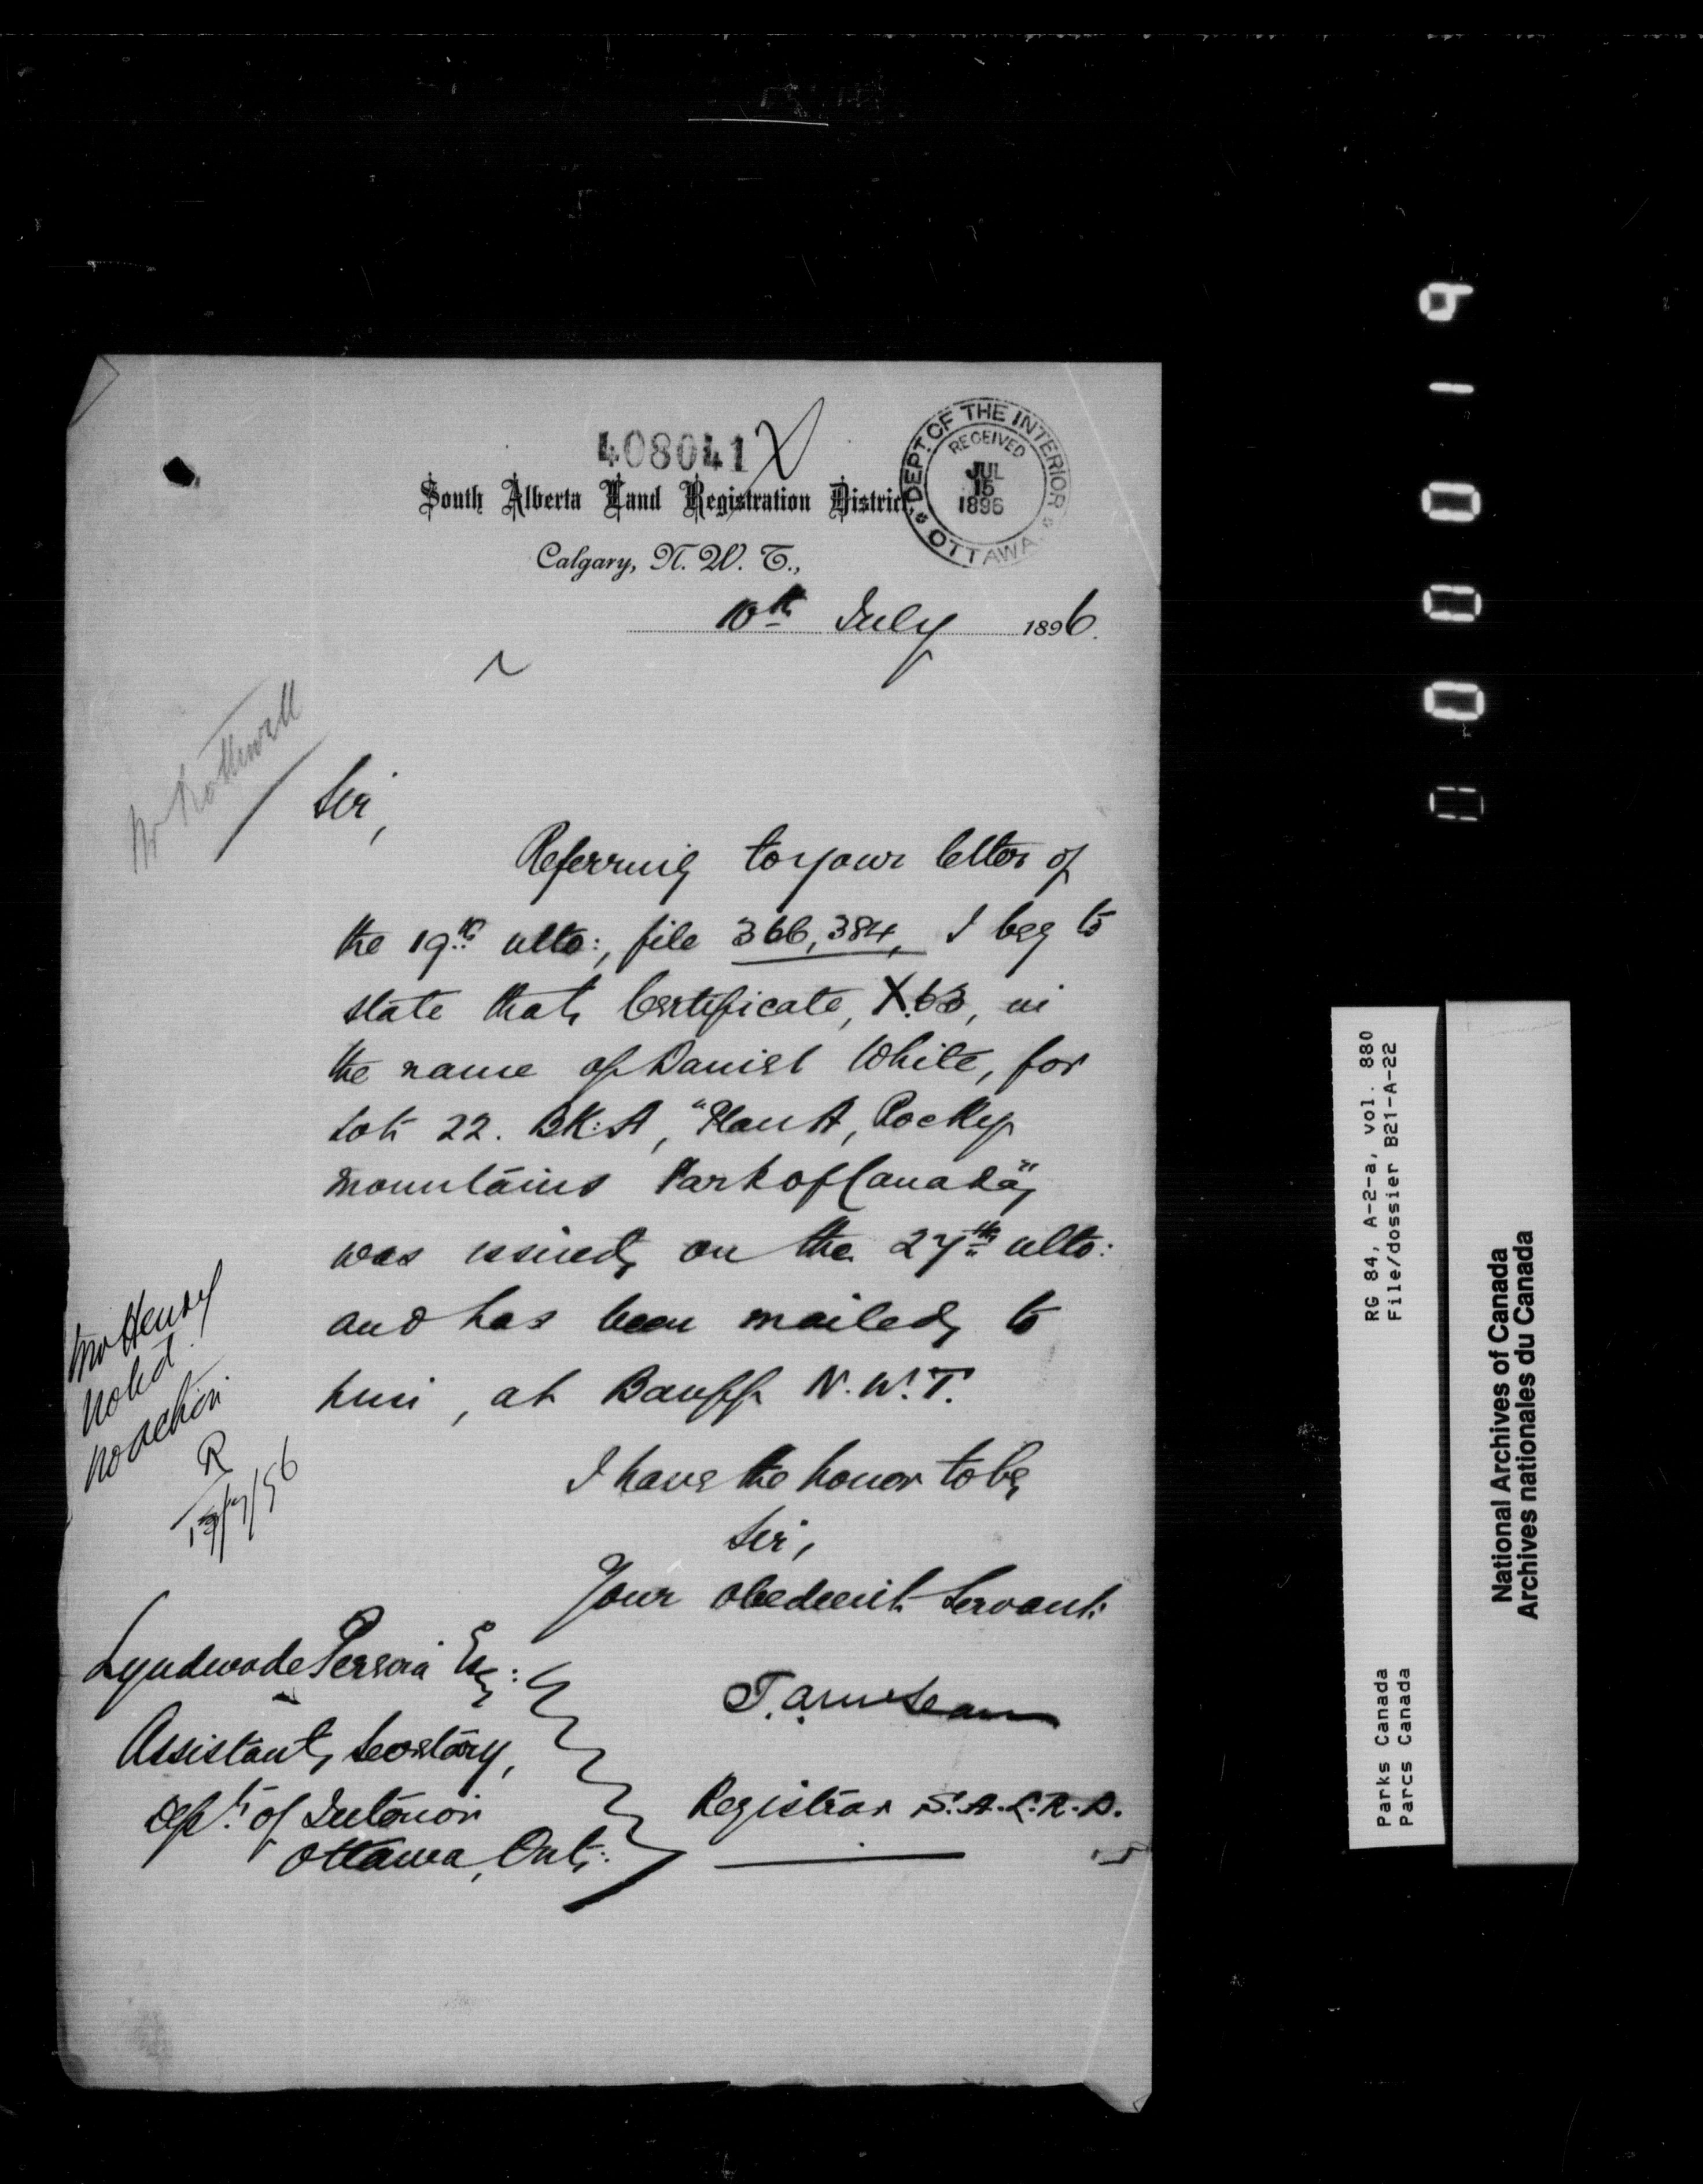 408041
South Alberta Land Registration District,
DEPT OF THE INTERIOR
RECEIVED
JUL
15
1896
OTTAWA
Calgary, N. W. T.,
10th July 1896.
Mr Rothwell
Sir,
Referring to your letter of
the 19th ulto:, file 366,384, I beg to
state that Certificate, X.63, in
the name of Daniel White, for
Lot 22. BK: A, "Plan A, Rocky
Mountains Park of Canada",
was issued on the 27th ulto:
and has been mailed to
him, at Banff N.W.T.
Mr Henry
Noted.
No action
R
/7/96
I have the honor to be
Sir,
Your obedient Servant
Registrar S.A.L.R.D.
Lyndwode Pereira Esq:
Assistant Secretary,
Dept. of Interior
Ottawa, Ont:
RG 84, A-2-a, vol. 880
File/dossier B21-A-22
Parks Canada
Parcs Canada
National Archives of Canada
Archives nationales du Canada
0 0 0 0 1 9